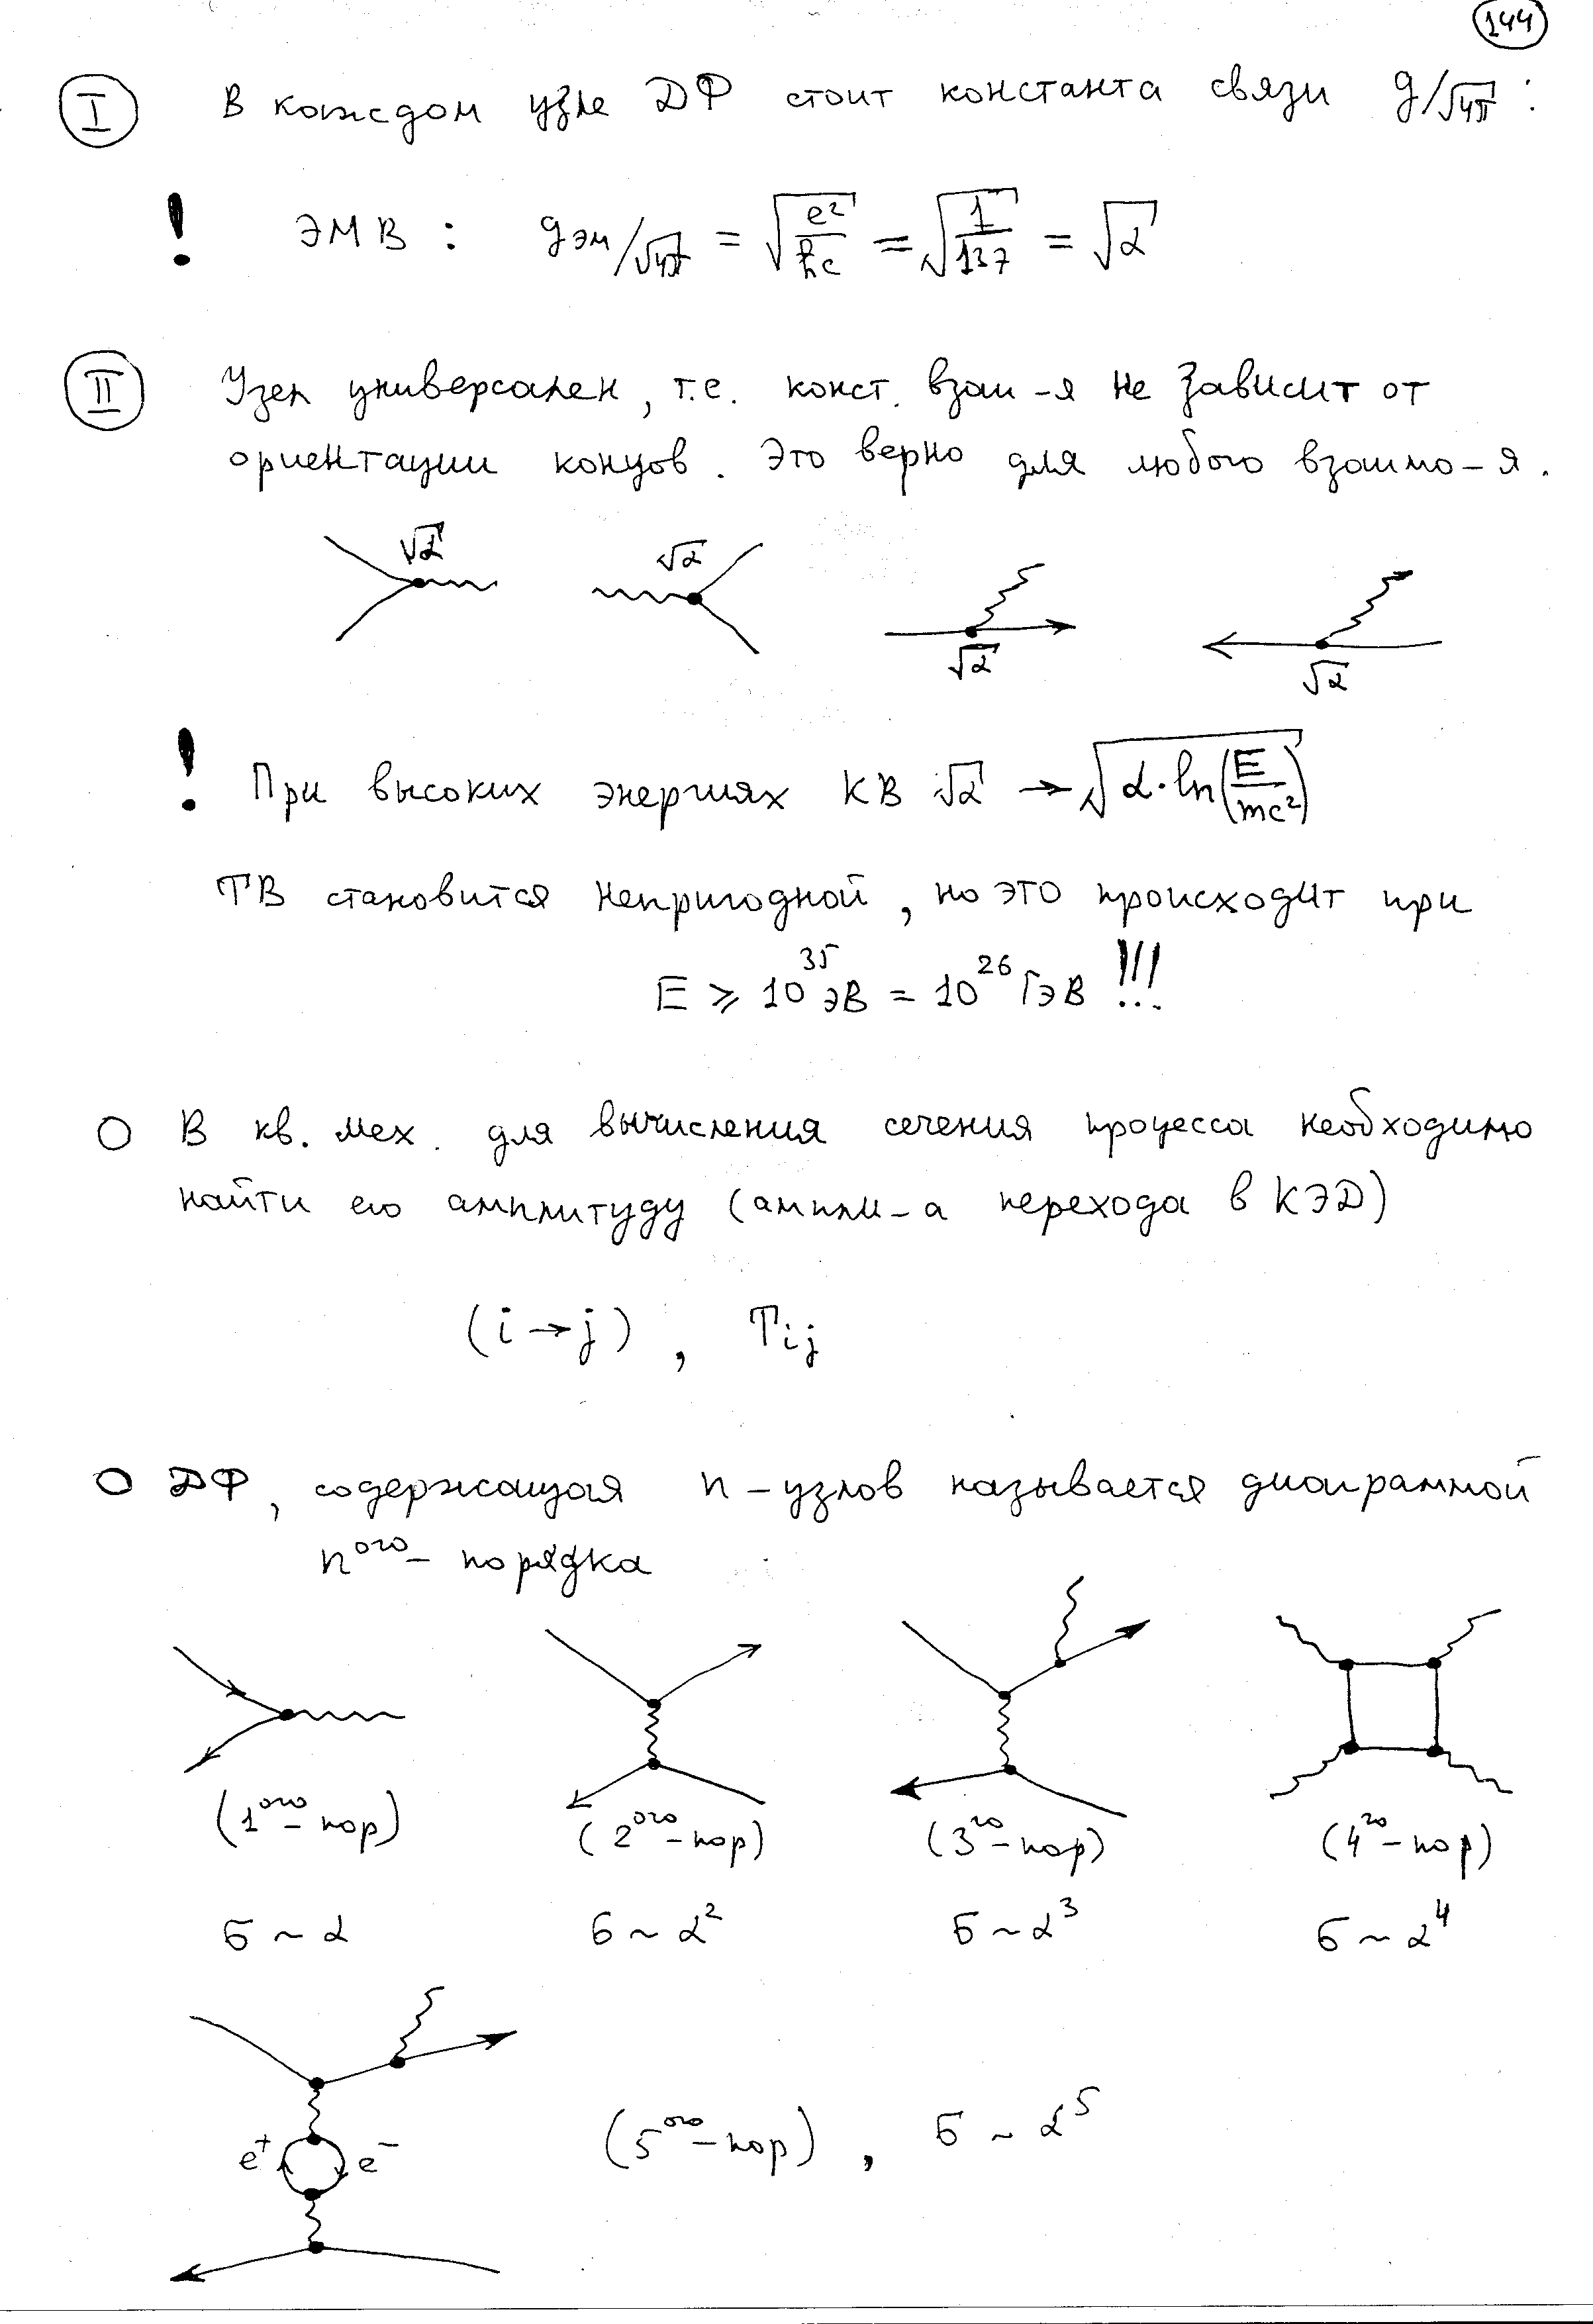 144
I В каждом узле ДФ стоит константа связи g/√4π :
! ЭМВ : gэм/√4π = √(e²/ħc) = √(1/137) = √α
II Узел универсален, т.е. конст. взаи-я не зависит от
ориентации концов. Это верно для любого взаимо-я.
√α √α √α √α
! При высоких энергиях КВ √α → √(α·ln(E/mc²))
ТВ становится непригодной, но это происходит при
E ⩾ 10³⁵ эВ = 10²⁶ ГэВ !!!
О В кв. мех. для вычисления сечения процесса необходимо
найти его амплитуду (ампли-а перехода в КЭД)
(i→j) , Tij
О ДФ, содержащая n-узлов называется диаграммой
nого- порядка
(1ого-пор) (2ого-пор) (3го-пор) (4го-пор)
σ ~ α σ ~ α² σ ~ α³ σ ~ α⁴
e⁺ e⁻ (5ого-пор) , σ ~ α⁵